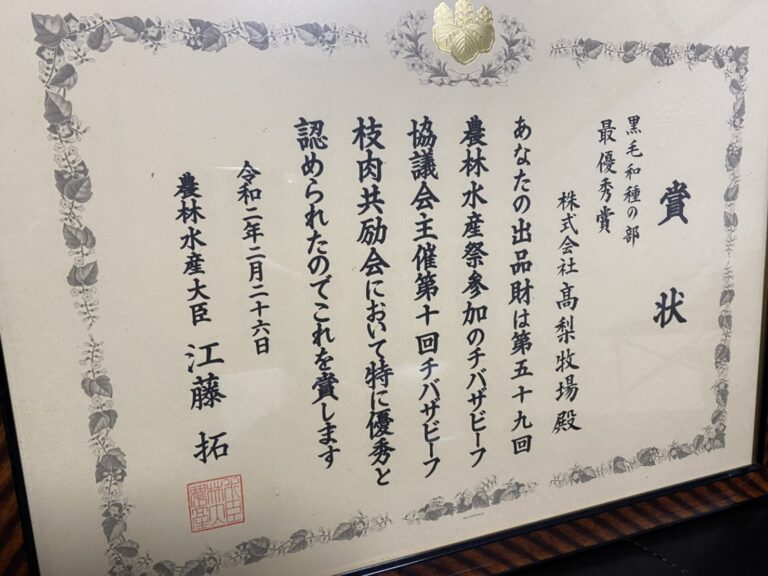 賞状
黒毛和種の部
最優秀賞
株式会社髙梨牧場殿
あなたの出品財は第五十九回
農林水産祭参加のチバザビーフ
協議会主催第十回チバザビーフ
枝肉共励会において特に優秀と
認められたのでこれを賞します
令和二年二月二十六日
農林水産大臣 江藤拓